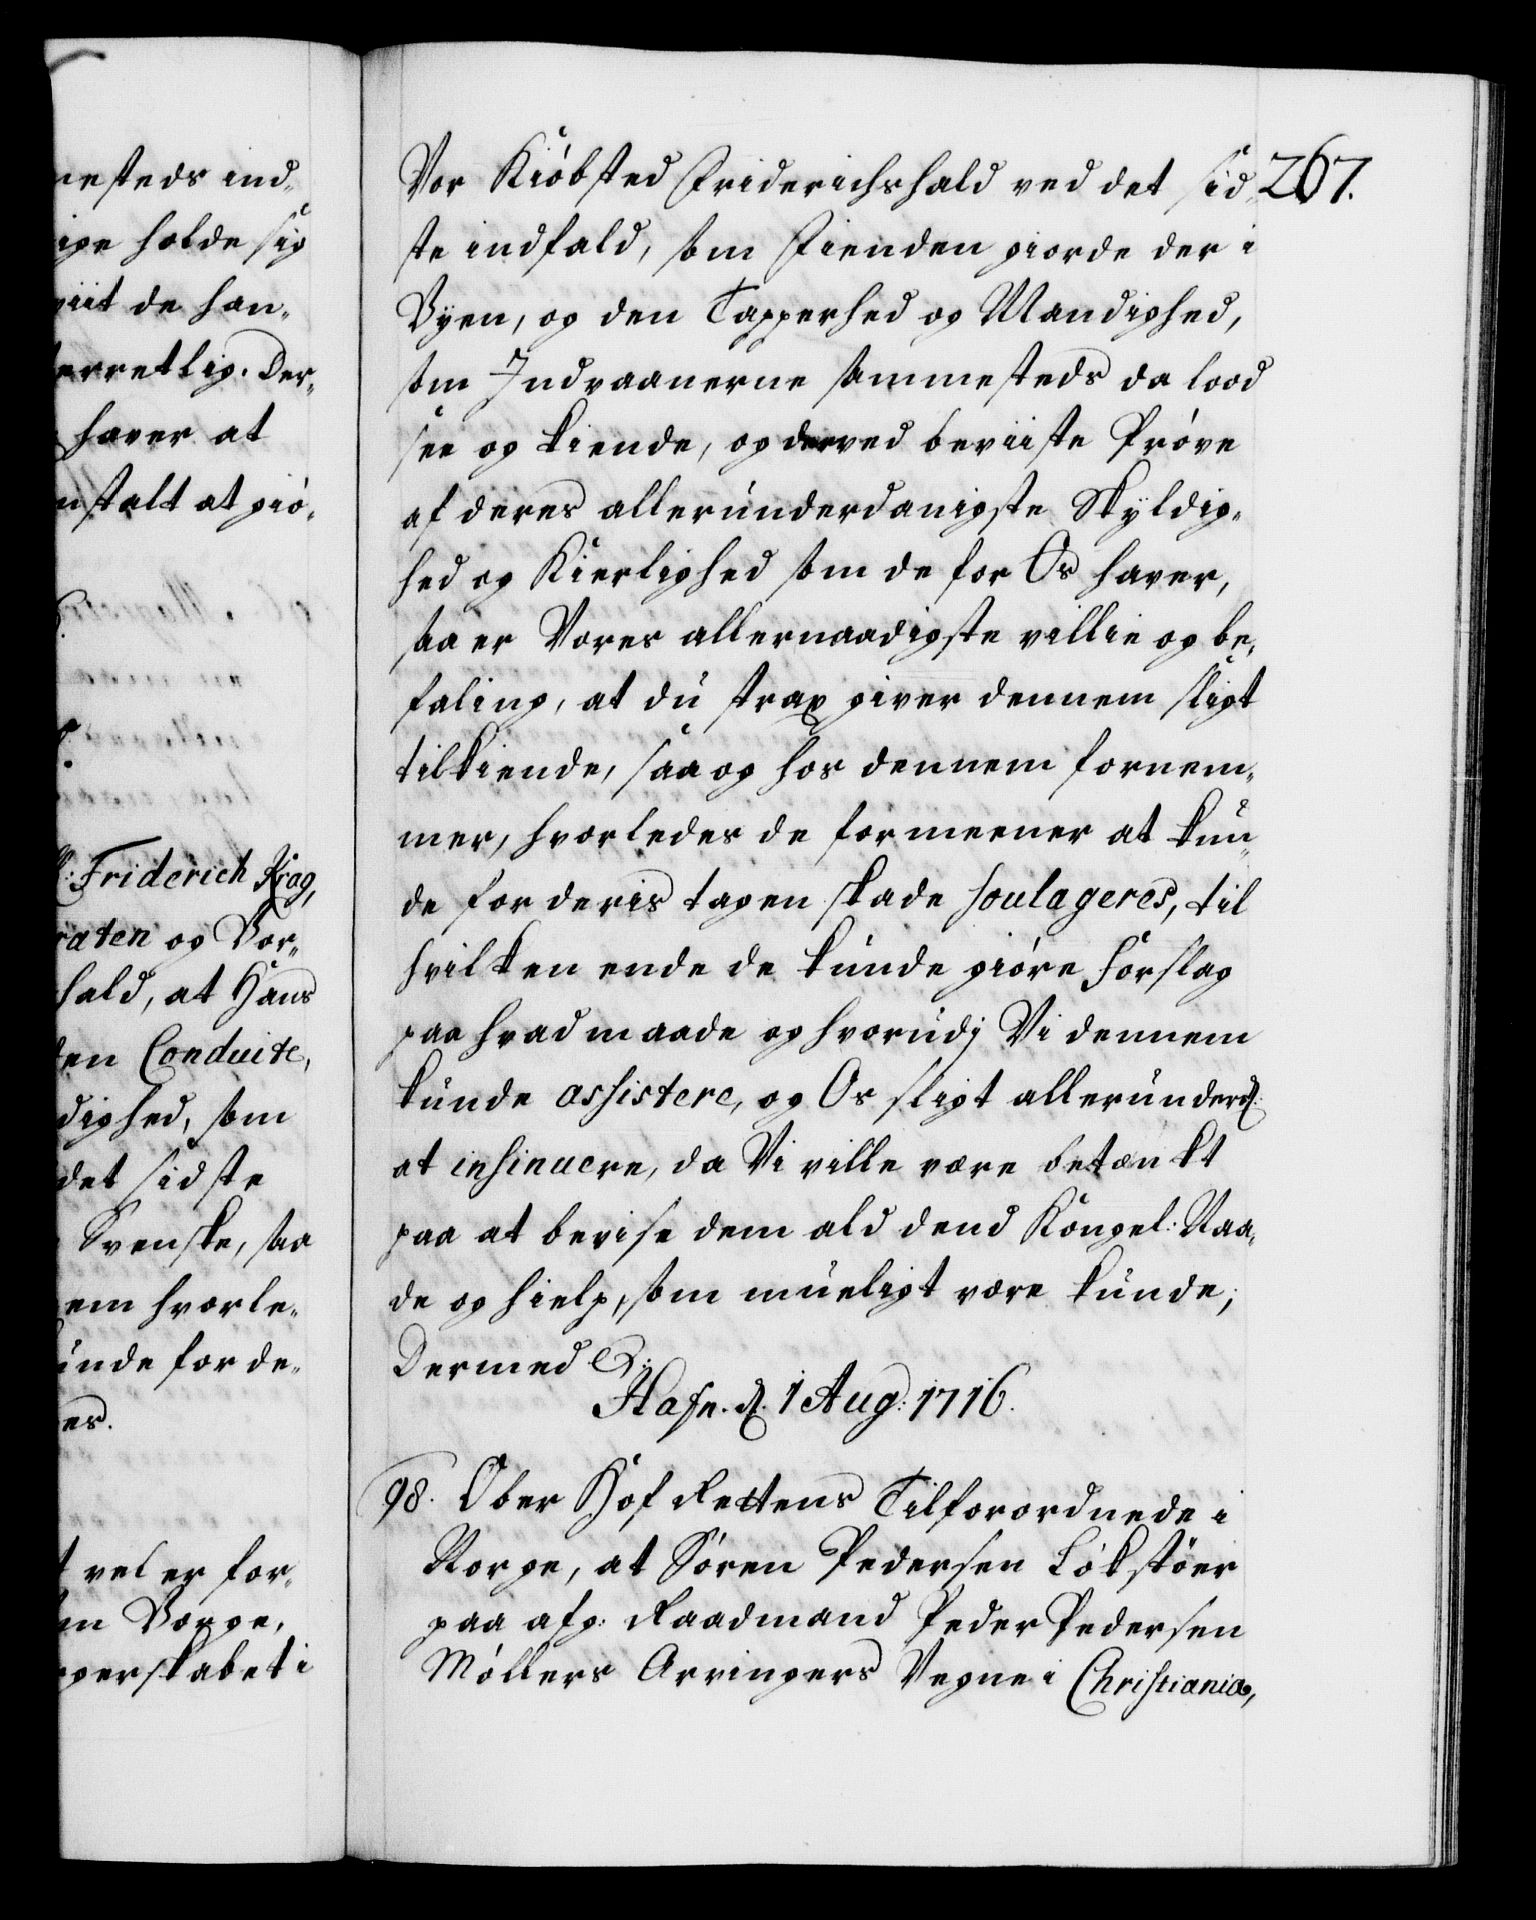 nesteds ind-
ige holde sig
viit de han-
erretlig. Der-
haver at
nstalt at giö-
Friderich Krag,
raten og Vor-
hald, at Hans
en Conduite,
dighed, som
det sidste
Svenske, saa
em hvorle-
unde for de-
es.
vel er for-
en Borge,
gerskabet i
267.
Vor Kiöbsted Friderichshald ved det sid-
ste indfald, som Fienden giorde der i
Byen, og den Tapperhed og Mandighed,
som Indvaanerne sammesteds da lood
see og kiende, og derved beviiste Pröve
af deres allerunderdanigste Skyldig-
hed og Kierlighed som de for Os haver,
saa er Vores allernaadigste villie og be-
faling, at du strax giver dennem sligt
tilkiende, saa og hos dennem fornem-
mer, hvorledes de formeener at kun-
de for deris tagen skade soulageres, til
hvilken ende de kunde giöre Forslag
paa hvad maade og hvorudj Vi dennem
kunde assistere, og Os sligt allerunderd:
at insinuere, da Vi ville være betænkt
paa at bevise dem ald dend Kongel: Naa-
de og hielp, som mueligt være kunde;
Dermed &:
Hafn. d. 1 Aug: 1716.
98. Ober Hof Rettens Tilforordnede i
Norge, at Sören Pedersen Lökstöer
paa afg: Raadmand Peder Pedersen
Möllers Arvingers Vegne i Christiania,